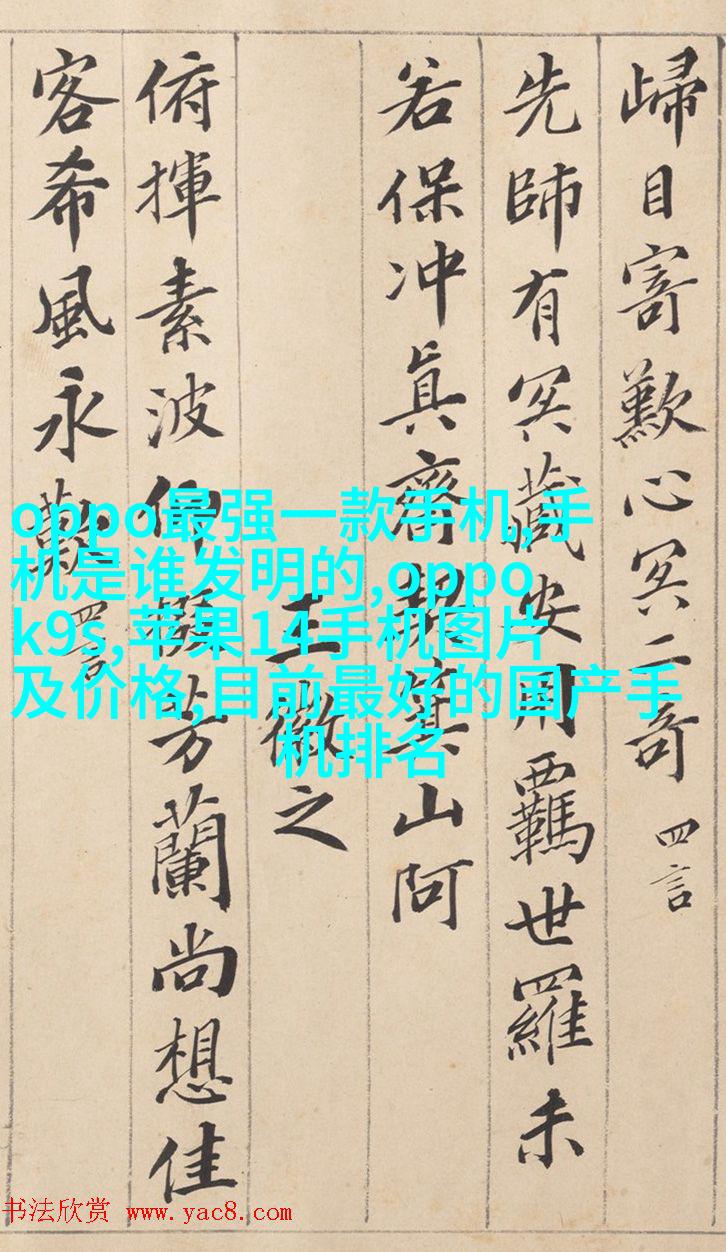 歸目寄歎心冥二奇 四言
先師有冥藏安用羈世羅未
若保冲真齊契箕山阿
王徽之
俯揮素波仰掇芳蘭尚想佳
客希風永歎 四言
oppo最强一款手机,手
机是谁发明的,oppo
k9s,苹果14手机图片
及价格,目前最好的国产手
机排名
书法欣赏 www.yac8.com